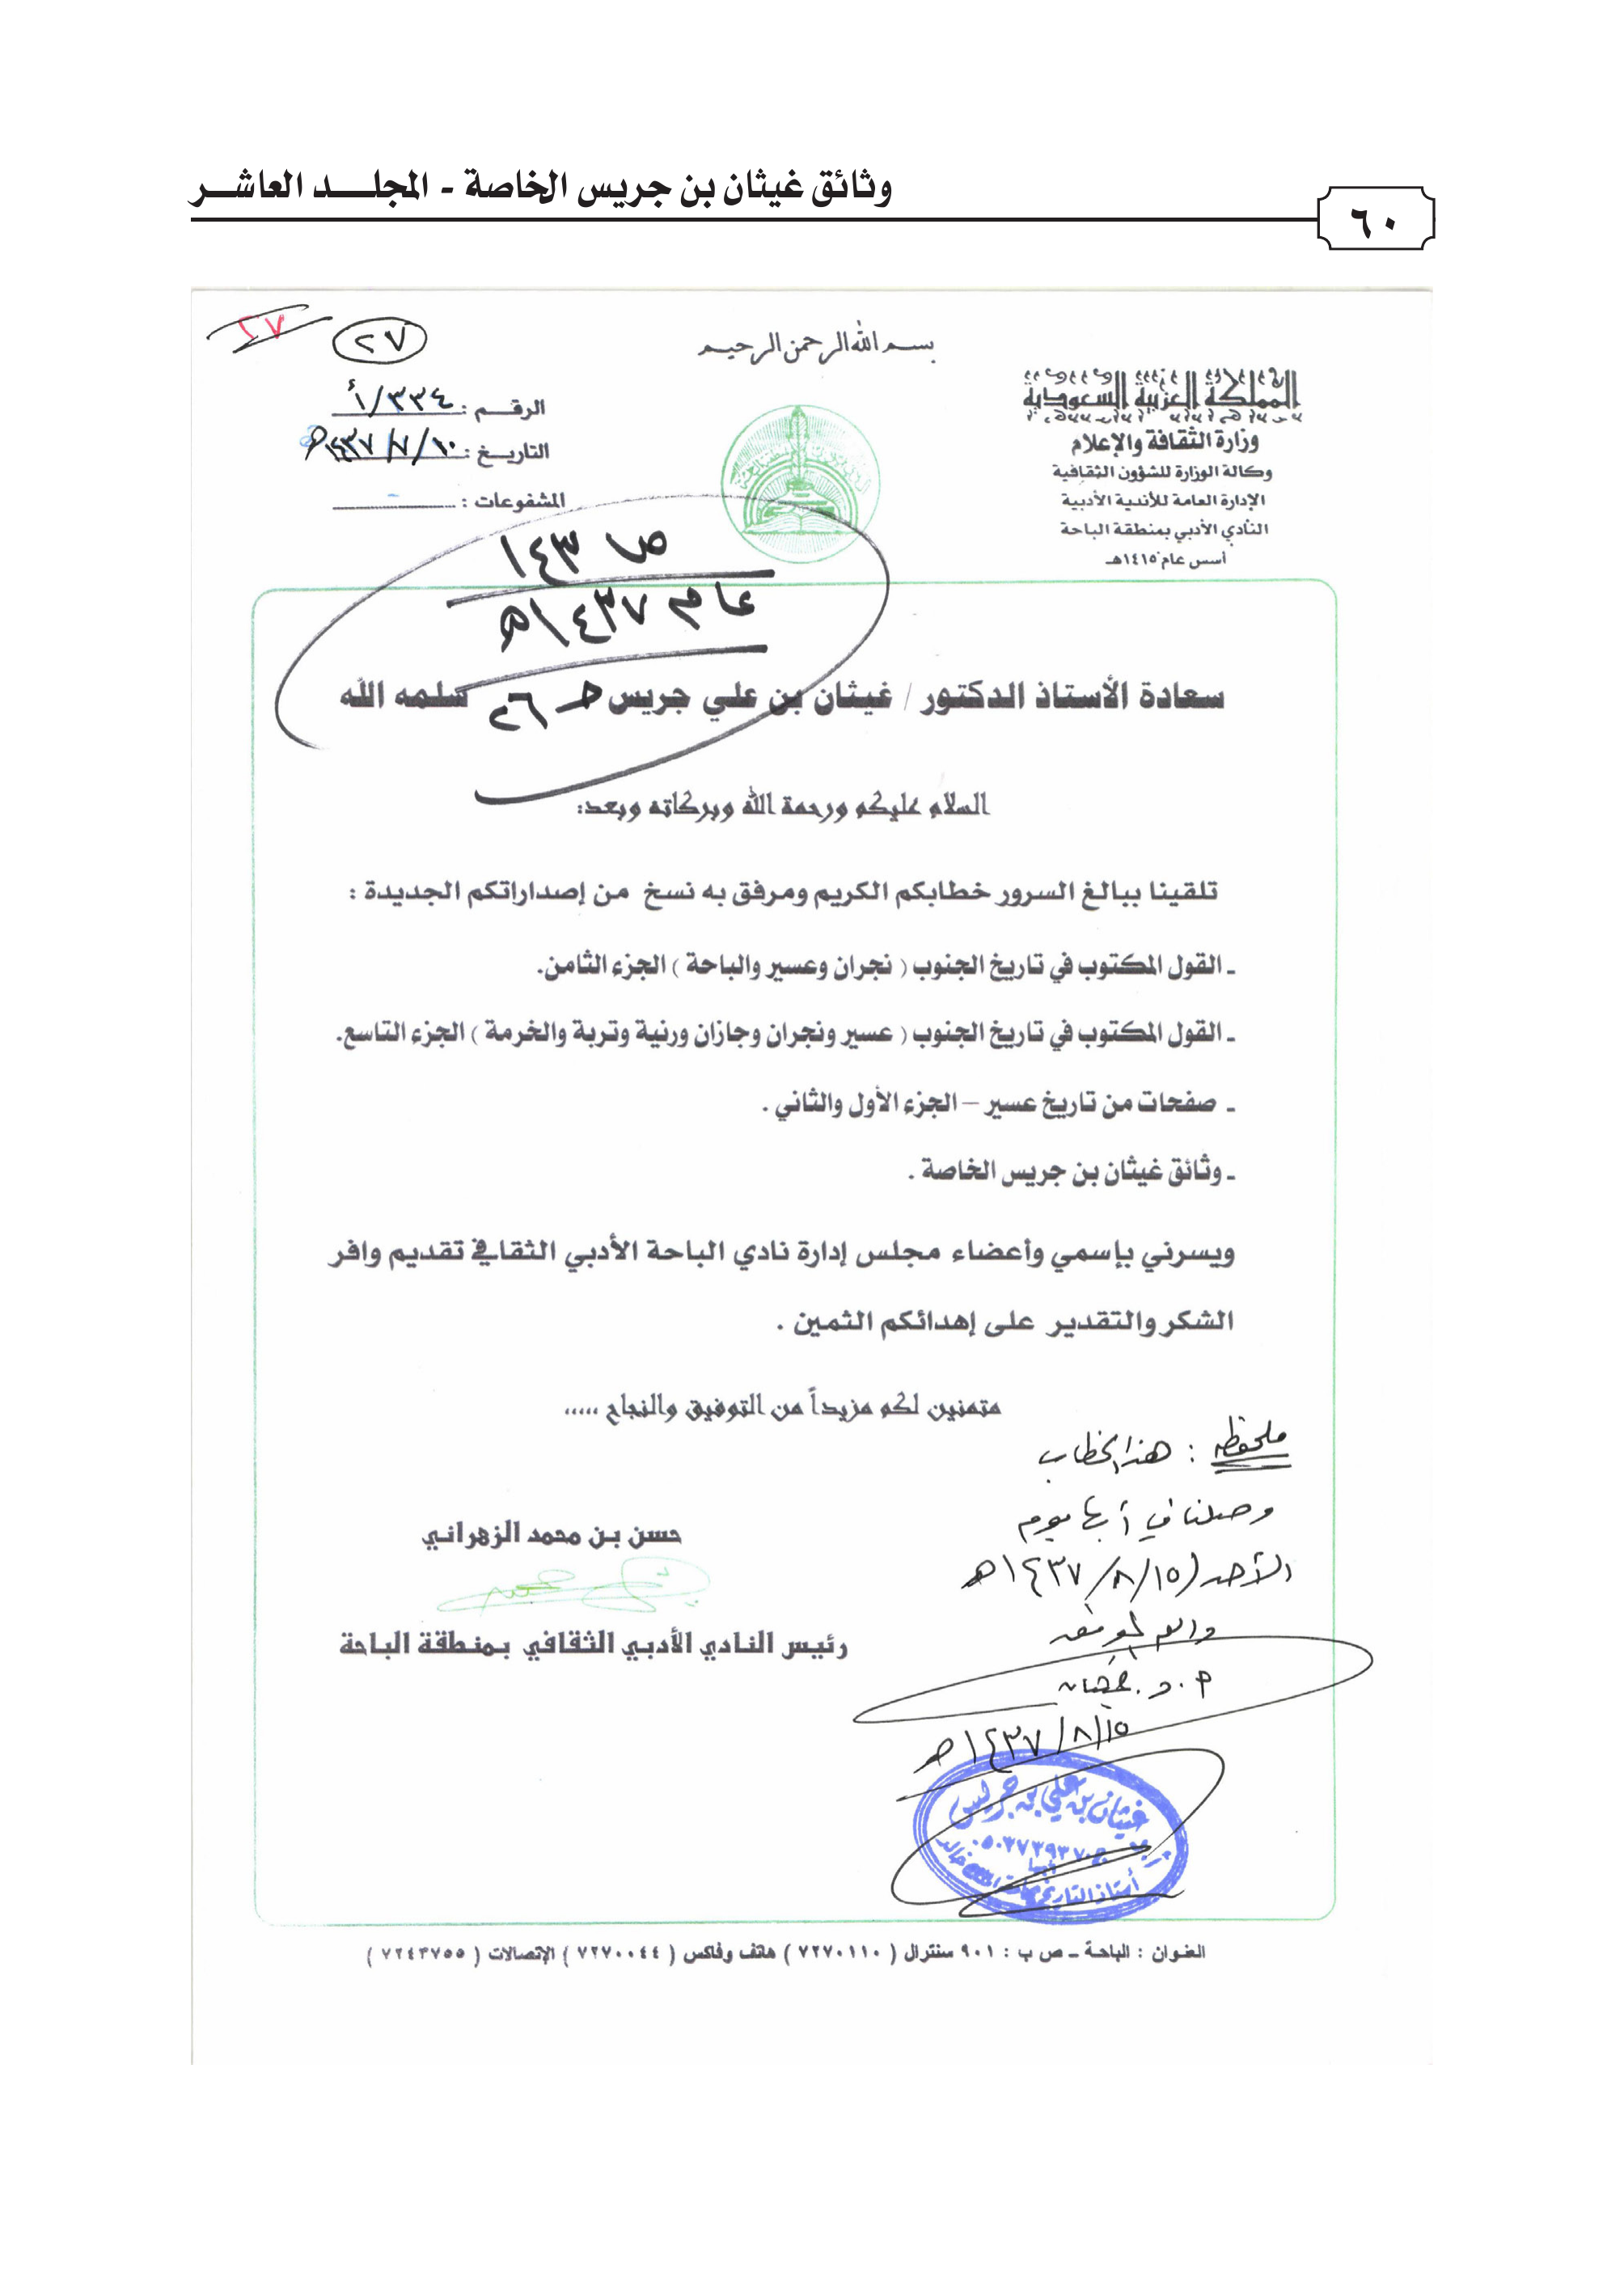 وثائق غيثان بن جريس الخاصة - المجلـــد العاشـــر
٦٠
٢٧
٢٧
بسم الله الرحمن الرحيم
المملكة العربية السعودية
وزارة الثقافة والإعلام
وكالة الوزارة للشؤون الثقافية
الإدارة العامة للأندية الأدبية
النادي الأدبي بمنطقة الباحة
أسس عام ١٤١٥هـ
الرقــم : ٣٣٤/أ
التاريــخ : ١٤٣٧/٧/٢٠هـ
المشفوعات :
عام ١٤٣٧هـ
سعادة الأستاذ الدكتور / غيثان بن علي جريس سلمه الله
السلام عليكم ورحمة الله وبركاته وبعد:
تلقينا ببالغ السرور خطابكم الكريم ومرفق به نسخ من إصداراتكم الجديدة :
ـ القول المكتوب في تاريخ الجنوب ( نجران وعسير والباحة ) الجزء الثامن.
ـ القول المكتوب في تاريخ الجنوب ( عسير ونجران وجازان ورنية وتربة والخرمة ) الجزء التاسع.
ـ صفحات من تاريخ عسير – الجزء الأول والثاني .
ـ وثائق غيثان بن جريس الخاصة .
ويسرني بإسمي وأعضاء مجلس إدارة نادي الباحة الأدبي الثقافي تقديم وافر
الشكر والتقدير على إهدائكم الثمين .
متمنين لكم مزيداً من التوفيق والنجاح .....
حسن بن محمد الزهراني
رئيس النادي الأدبي الثقافي بمنطقة الباحة
ملحوظة : هذا الخطاب
وصلنا في أبها يوم
الأحد (١٤٣٧/٨/١٥هـ
والله الموفق
أ.د. غيثان
١٤٣٧/٨/١٥هـ
غيثان بن علي بن جريس
أستاذ التاريخ بجامعة الملك خالد
أبها
العنوان : الباحة ـ ص ب : ٩٠١ سنترال ( ٧٢٧٠١١٠ ) هاتف وفاكس ( ٧٢٧٠٠٤٤ ) الإتصالات ( ٧٢٤٣٧٥٥ )